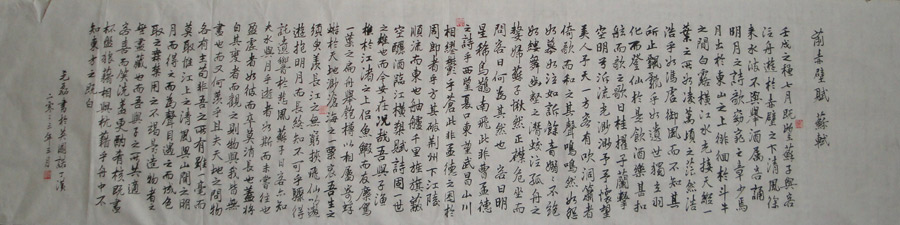 前赤壁賦 蘇軾
壬戌之秋七月既望蘇子與客
泛舟遊於赤壁之下清風徐
來水波不興舉酒屬客誦
明月之詩歌窈窕之章少焉
月出於東山之上徘徊於斗牛
之間白露橫江水光接天縱一
葦之所如凌萬頃之茫然浩
浩乎如馮虛御風而不知其
所止飄飄乎如遺世獨立羽
化而登仙於是飲酒樂甚扣
舷而歌之歌曰桂棹兮蘭槳擊
空明兮泝流光渺渺兮予懷望
美人兮天一方客有吹洞簫者
倚歌而和之其聲嗚嗚然如怨
如慕如泣如訴餘音嫋嫋不絕
如縷舞幽壑之潛蛟泣孤舟之
嫠婦蘇子愀然正襟危坐而
問客曰何為其然也客曰月明
星稀烏鵲南飛此非曹孟德
之詩乎西望夏口東望武昌山川
相繆鬱乎蒼蒼此非孟德之困於
周郎者乎方其破荊州下江陵
順流而東也舳艫千里旌旗蔽
空釃酒臨江橫槊賦詩固一世
之雄也而今安在哉況吾與子漁
樵於江渚之上侶魚蝦而友麋鹿駕
一葉之扁舟舉匏樽以相屬寄蜉
蝣於天地渺滄海之一粟哀吾生之
須臾羨長江之無窮挾飛仙以遨
遊抱明月而長終知不可乎驟得
託遺響於悲風蘇子曰客亦知
夫水與月乎逝者如斯而未嘗往也
盈虛者如彼而卒莫消長也蓋將
自其變者而觀之則物與我皆無
盡也而又何羨乎且夫天地之間物
各有主苟非吾之所有雖一毫而
莫取惟江上之清風與山間之明
月耳得之而為聲目遇之而成色
取之無禁用之不竭是造物者之
無盡藏也而吾與子之所共適
客喜而笑洗盞更酌肴核既盡
杯盤狼藉相與枕藉乎舟中不
知東方之既白
元磊書於英國諾丁漢
二零一三年五月